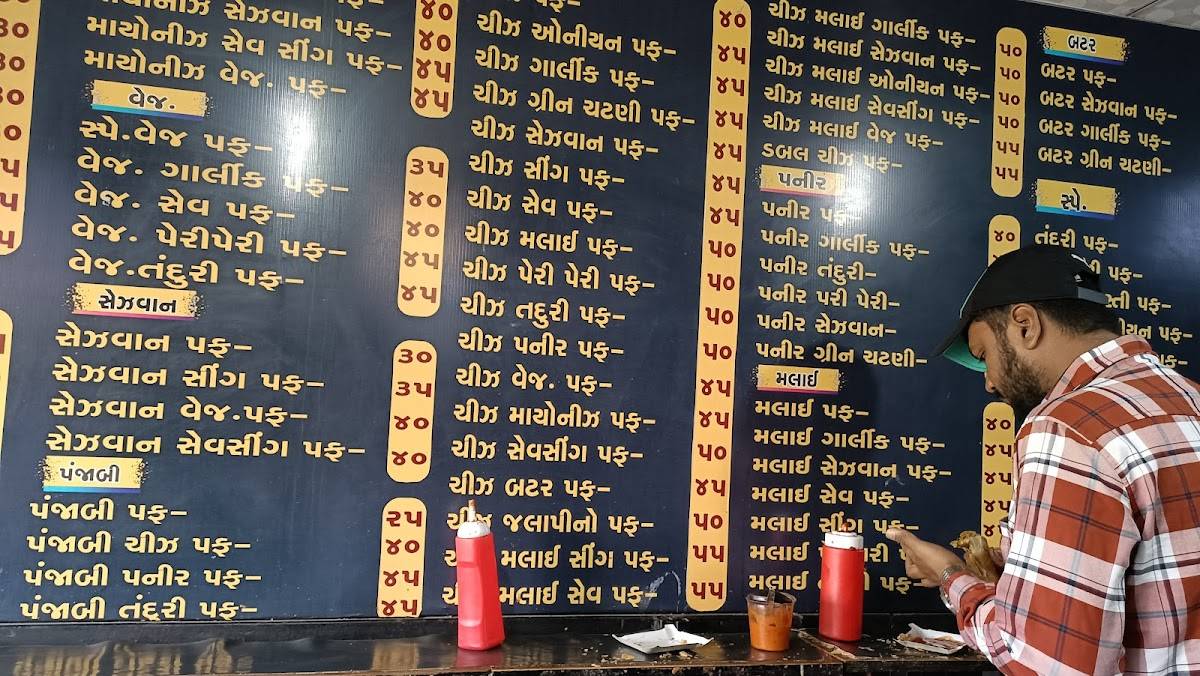 સેઝવાન પફ–
માયોનીઝ સેવ સીંગ પફ–
માયોનીઝ વેજ. પફ–
વેજ.
સ્પે.વેજ પફ–
૩૫
વેજ. ગાર્લીક પફ–
૪૦
વેજ. સેવ પફ–
૪૦
વેજ. પેરીપેરી પફ–
૪૫
વેજ.તંદુરી પફ–
૪૫
સેઝવાન
સેઝવાન પફ–
૩૦
સેઝવાન સીંગ પફ–
૩૫
સેઝવાન વેજ.પફ–
૪૦
સેઝવાન સેવસીંગ પફ–
૪૦
પંજાબી
પંજાબી પફ–
૨૫
પંજાબી ચીઝ પફ–
૪૦
પંજાબી પનીર પફ–
૪૫
પંજાબી તંદુરી પફ–
૪૫
ચીઝ ઓનીયન પફ–
૪૦
ચીઝ ગાર્લીક પફ–
૪૫
ચીઝ ગ્રીન ચટણી પફ–
૪૫
ચીઝ સેઝવાન પફ–
૪૫
ચીઝ સીંગ પફ–
૪૫
ચીઝ સેવ પફ–
૪૫
ચીઝ મલાઈ પફ–
૪૫
ચીઝ પેરી પેરી પફ–
૫૦
ચીઝ તદુરી પફ–
૫૦
ચીઝ પનીર પફ–
૫૦
ચીઝ વેજ. પફ–
૫૦
ચીઝ માયોનીઝ પફ–
૪૫
ચીઝ સેવસીંગ પફ–
૪૫
ચીઝ બટર પફ–
૫૦
ચીઝ જલાપીનો પફ–
૪૫
મલાઈ સીંગ પફ–
૫૦
મલાઈ સેવ પફ–
૫૫
૫૫
ચીઝ મલાઈ ગાર્લીક પફ–
૫૦
ચીઝ મલાઈ સેઝવાન પફ–
૫૦
ચીઝ મલાઈ ઓનીયન પફ–
૫૦
ચીઝ મલાઈ સેવસીંગ પફ–
૫૦
ચીઝ મલાઈ વેજ પફ–
૫૫
ડબલ ચીઝ પફ–
૫૫
પનીર
પનીર પફ–
૪૦
પનીર ગાર્લીક પફ–
પનીર તંદુરી–
પનીર પરી પેરી–
પનીર સેઝવાન–
પનીર ગ્રીન ચટણી–
મલાઈ
મલાઈ પફ–
૪૦
મલાઈ ગાર્લીક પફ–
૪૫
મલાઈ સેઝવાન પફ–
૪૫
મલાઈ સેવ પફ–
૪૫
મલાઈ સીંગ પફ–
મલાઈ
મલાઈ
બટર
બટર પફ–
બટર સેઝવાન પફ–
બટર ગાર્લીક પફ–
બટર ગ્રીન ચટણી–
સ્પે.
તંદરી પફ–
પફ–
પફ–
પફ–